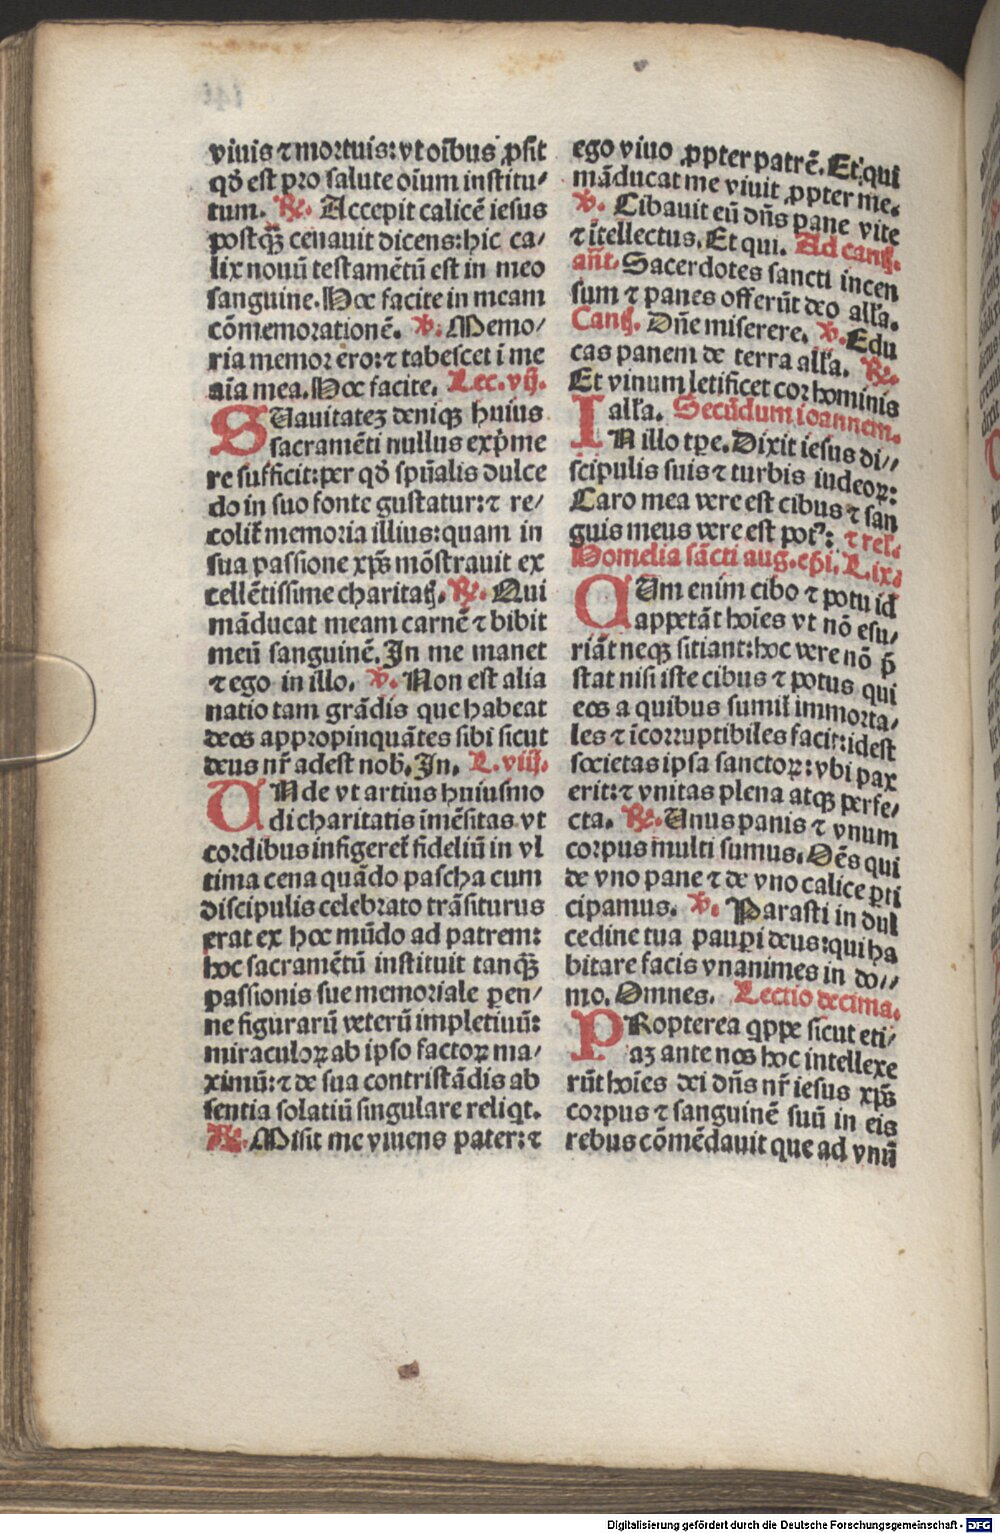 viuis ⁊ mortuis: vt oībus ꝓsit
qđ est pro salute oīum institu/
tum. ℟. Accepit calicē iesus
postq̃ȝ cenauit dicens: hic ca/
lix nouū testamētū est in meo
sanguine. Hoc facite in meam
cōmemorationē. ℣. Memo/
ria memor ero: ⁊ tabescet ī me
aīa mea. Hoc facite. Lec. vij.
SUauitatez deniqȝ huius
sacramēti nullus exp̄me
re sufficit: per qđ spūalis dulce
do in suo fonte gustatur: ⁊ re/
colit᷑ memoria illius: quam in
sua passione xp̄s mōstrauit ex
cellētissime charitatꝭ. ℟. Qui
māducat meam carnē ⁊ bibit
meū sanguinē. In me manet
⁊ ego in illo. ℣. Non est alia
natio tam grādis que habeat
deos appropinquātes sibi sicut
deus nr̄ adest nob̄. In. L. viij.
UNde vt artius huiusmo
di charitatis īmēsitas vt
cordibus infigeret᷑ fideliū in vl
tima cena quādo pascha cum
discipulis celebrato trāsiturus
erat ex hoc mūdo ad patrem:
hoc sacramētū instituit tanq̃ȝ
passionis sue memoriale ꝑen/
ne figurarū veterū impletiuū:
miraculoꝝ ab ipso factoꝝ ma/
ximū: ⁊ de sua contristādis ab
sentia solatiū singulare reliqt.
℟. Misit me viuens pater: ⁊
ego viuo ꝓpter patrē. Et qui
māducat me viuit ꝓpter me.
℣. Cibauit eū dn̄s pane vite
⁊ ītellectus. Et qui. Ad cantꝭ.
an̄t. Sacerdotes sancti incen
sum ⁊ panes offerūt deo all'a.
Cantꝭ. Dn̄e miserere. ℣. Edu
cas panem de terra all'a. ℟.
Et vinum letificet cor hominis
all'a. Secūdum ioannem.
IN illo tꝑe. Dixit iesus di//
scipulis suis ⁊ turbis iudeoꝝ:
Caro mea vere est cibus ⁊ san
guis meus vere est potꝰ: ⁊ rel.
Homelia sācti aug. ep̄i. L. ix.
CUm enim cibo ⁊ potu id
appetāt hoīes vt nō esu/
riāt neqȝ sitiant: hoc vere nō p̄
stat nisi iste cibus ⁊ potus qui
eos a quibus sumit᷑ immorta/
les ⁊ īcorruptibiles facit: idest
societas ipsa sanctoꝝ: vbi pax
erit: ⁊ vnitas plena atqȝ perfe/
cta. ℟. Unus panis ⁊ vnum
corpus multi sumus. Oēs qui
de vno pane ⁊ de vno calice ꝑti
cipamus. ℣. Parasti in dul
cedine tua pauꝑi deus: qui ha
bitare facis vnanimes in do//
mo. Omnes. Lectio decima.
PRopterea qppe sicut eti/
aȝ ante nos hoc intellexe
rūt hoīes dei dn̄s nr̄ iesus xp̄s
corpus ⁊ sanguinē suū in eis
rebus cōmēdauit que ad vnū
Digitalisierung gefördert durch die Deutsche Forschungsgemeinschaft - DFG